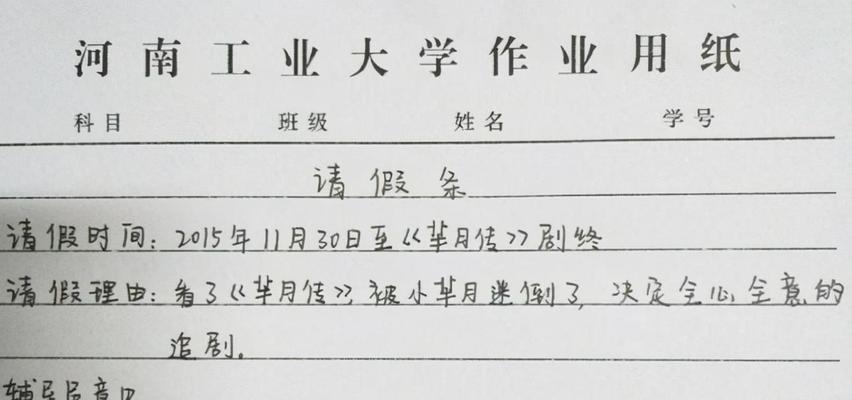 河南工业大学作业用纸
科目 班级 姓名 学号
请假条
请假时间：2015年11月30日至《芈月传》剧终
请假理由：看了《芈月传》，被小芈月迷倒了，决定全心全意的
追剧。
辅导员意见